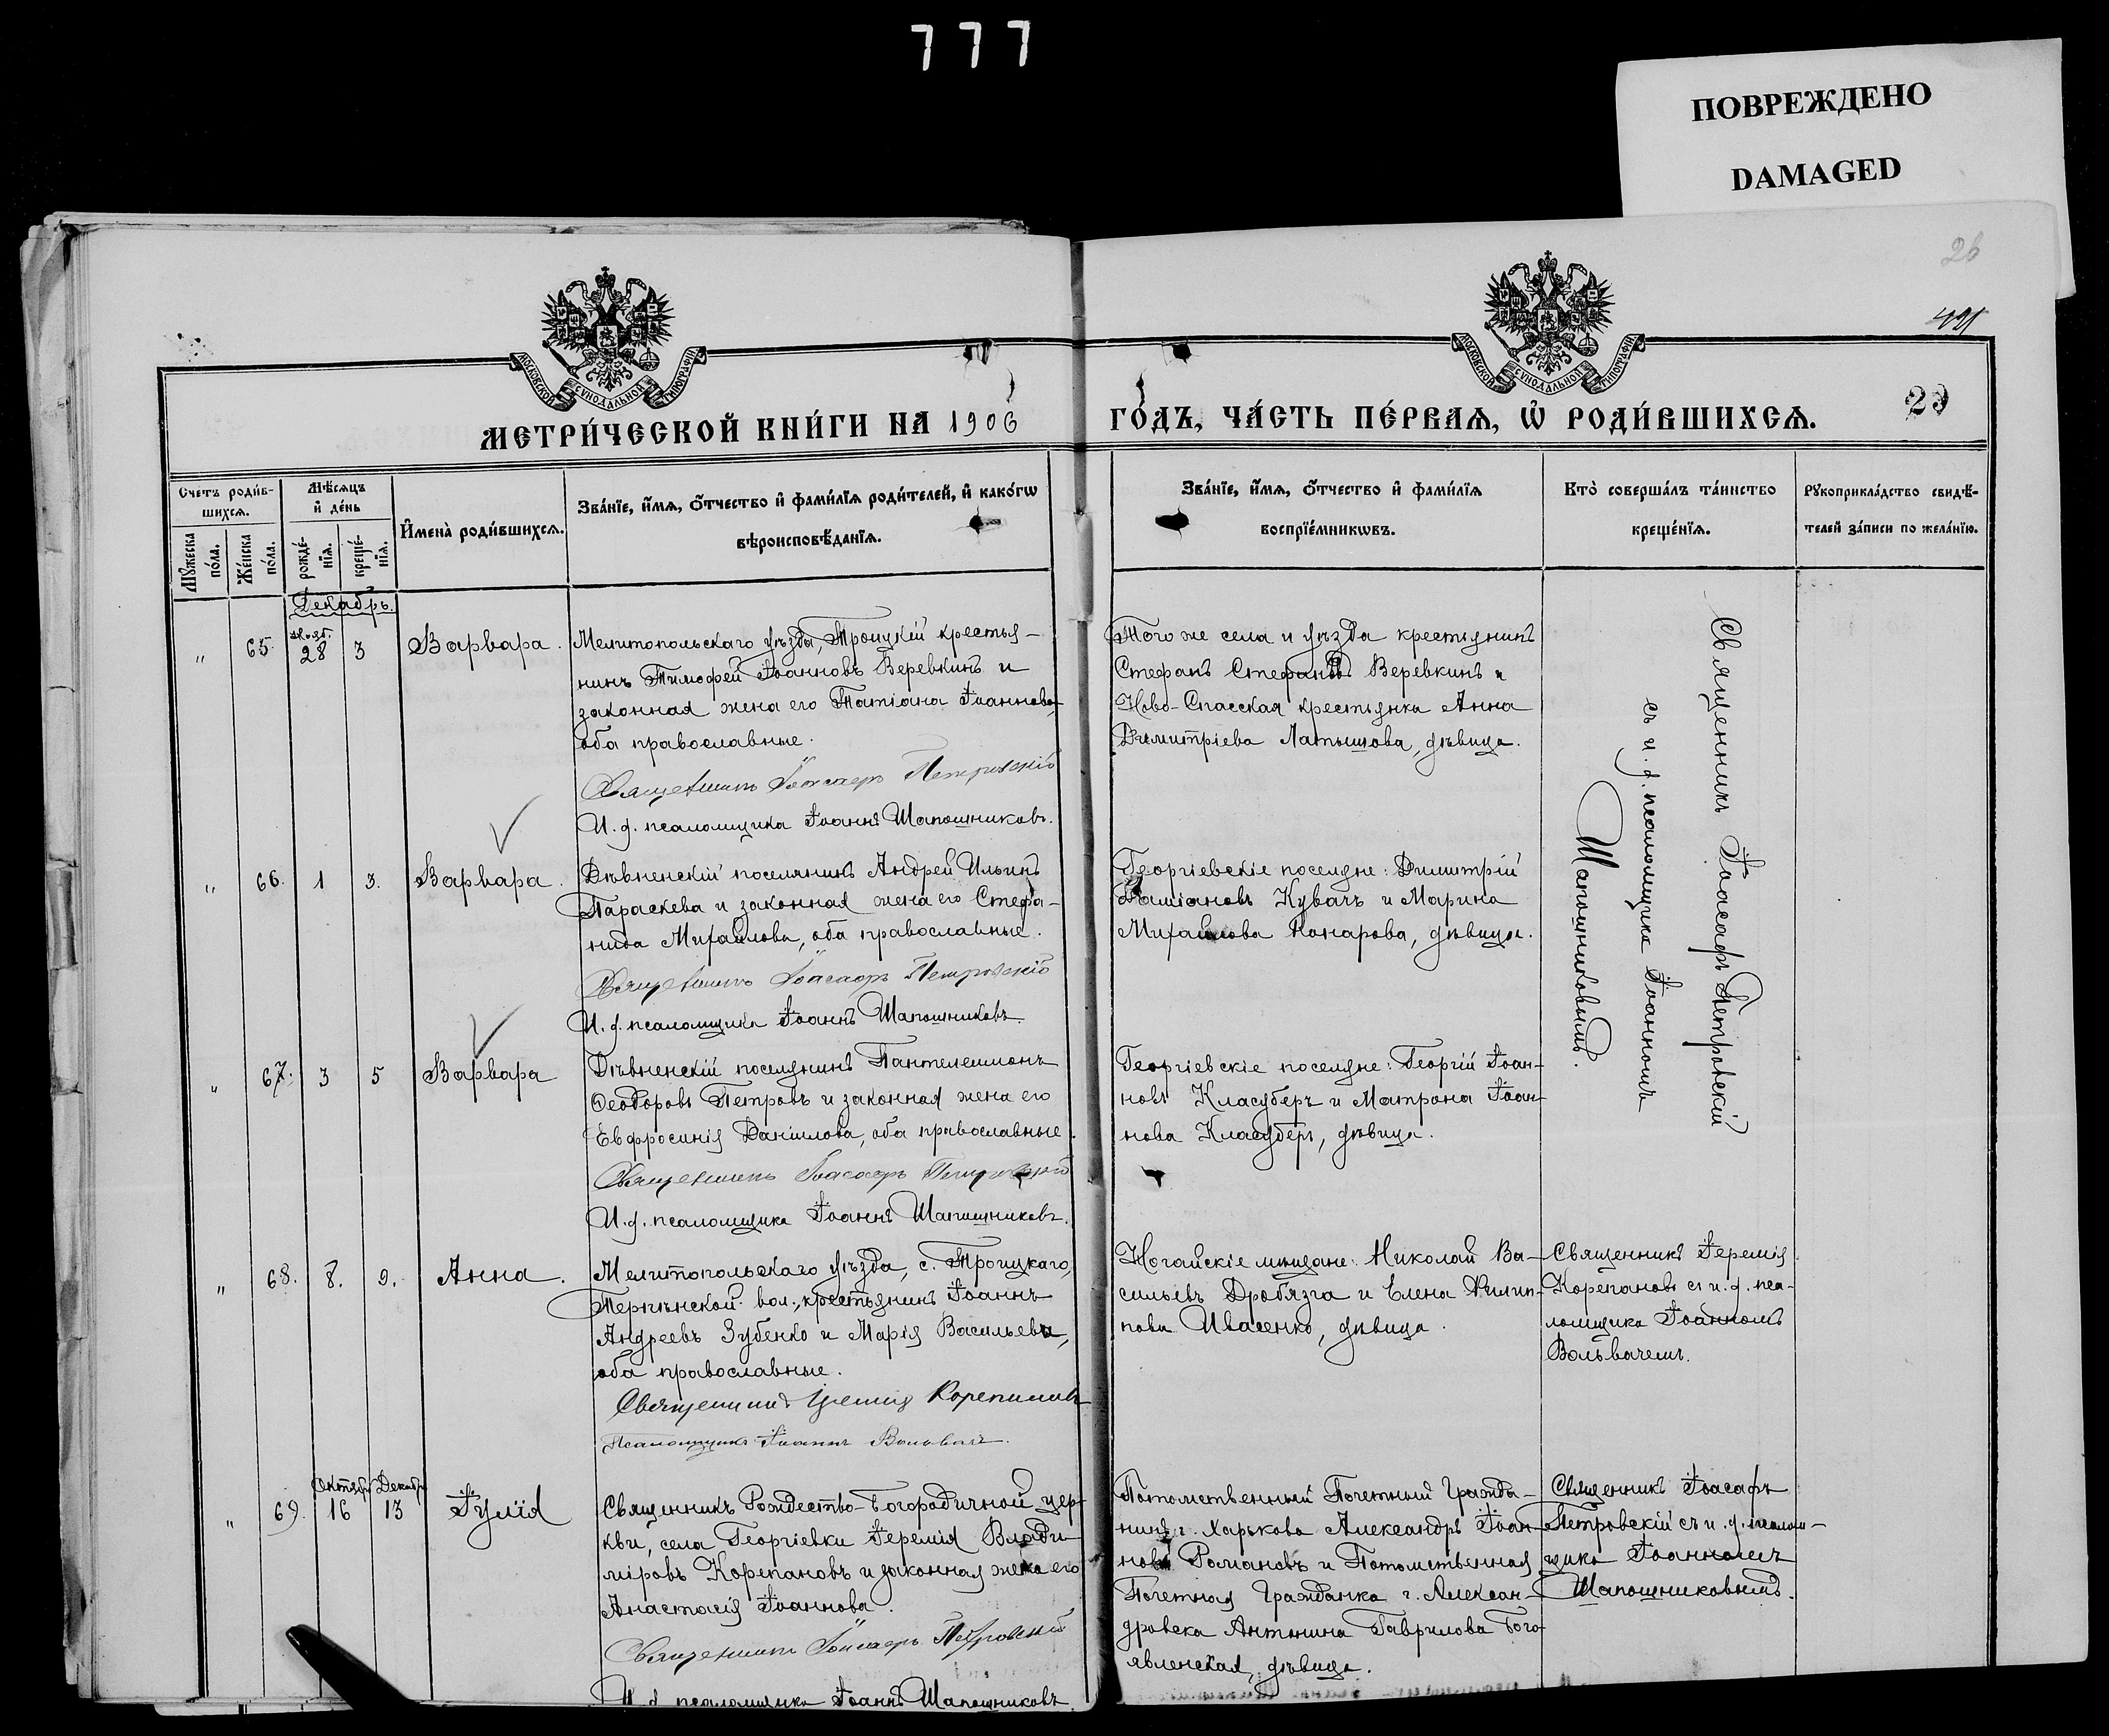 777
ПОВРЕЖДЕНО
DAMAGED
26
МОСКОВСКОЙ СѴНОДАЛЬНОЙ ТИПОГРАФІИ
МОСКОВСКОЙ СѴНОДАЛЬНОЙ ТИПОГРАФІИ
23
МЕТРИ́ЧЕСКОЙ КНИ́ГИ НА 1906
ГО́ДЪ, ЧА́СТЬ ПЕ́РВАЯ, Ѡ҆ РОДИ́ВШИХСЯ.
Счетъ роди́в-
шихся.
Мѣ́сяцъ
и҆ де́нь
Мꙋ́жеска
по́ла.
Же́нска
по́ла.
рожде́-
нія.
креще́-
нія.
И҆мена̀ роди́вшихся.
Зва́нїе, и҆́мя, ѻ҆́тчество и҆ фами́лїя роди́телей, и҆ како́гѡ
вѣроисповѣ́данїя.
Зва́нїе, и҆́мя, ѻ҆́тчество и҆ фами́лїя
воспрїе́мникѡвъ.
Кто̀ соверша́лъ та́инство
креще́нїя.
Рꙋкоприкла́дство свидѣ́-
телей за́писи по жела́нїю.
Декабрь.
„ 65. Нояб. 28 3 Варвара.
Мелитопольскаго уѣзда, Троицкій крестья-
нинъ Тимофей Іоанновъ Веревкинъ и
законная жена его Татіана Іоаннова,
оба православные.
Священникъ Іоасафъ Петровскій
И. д. псаломщика Іоаннъ Шапошниковъ.
Того же села и уѣзда крестьянинъ
Стефанъ Стефановъ Веревкинъ и
Ново-Спасская крестьянка Анна
Димитріева Латышова, дѣвица.
Священникъ Іоасафъ Петровскій
съ и. д. псаломщика Іоанномъ
Шапошниковымъ.
„ 66. 1 3. Варвара.
Дѣвненскій поселянинъ Андрей Ильинъ
Параскева и законная жена его Стефа-
нида Михайлова, оба православные.
Священникъ Іоасафъ Петровскій
И. д. псаломщика Іоаннъ Шапошниковъ.
Георгіевскіе поселяне: Димитрій
Даміановъ Кувачъ и Марина
Михайлова Конарова, дѣвица.
„ 67. 3 5 Варвара
Дѣвненскій поселянинъ Пантелеимонъ
Ѳеодоровъ Петровъ и законная жена его
Евфросинія Даніилова, оба православные.
Священникъ Іоасафъ Петровскій
И. д. псаломщика Іоаннъ Шапошниковъ.
Георгіевскіе поселяне: Георгій Іоан-
новъ Класуберъ и Матрона Іоан-
нова Класуберъ, дѣвица.
„ 68. 8. 9. Анна.
Мелитопольскаго уѣзда, с. Троицкаго,
вол., крестьянинъ Іоаннъ
Андреевъ Зубенко и Марія Васильева,
оба православные.
Священникъ Іеремія Корепановъ
Псаломщикъ Іоаннъ
Ногайскіе мѣщане: Николай Ва-
сильевъ Дробязга и Елена Филип-
пова Ивасенко, дѣвица.
Священникъ Іеремія
Корепановъ съ и. д. пса-
ломщика Іоанномъ
Вольвачемъ.
„ 69. Октябр. 16 Декабр. 13 Іулія
Священникъ Рождество-Богородичной цер-
кви, села Георгіевки Іеремія Влади-
міровъ Корепановъ и законная жена его
Анастасія Іоаннова.
Священникъ Іоасафъ Петровскій
И. д. псаломщика Іоаннъ Шапошниковъ.
Потомственный Почетный Гражда-
нинъ г. Харькова Александръ Іоан-
новъ Романовъ и Потомственная
Почетная Гражданка г. Алексан-
дровска Антонина Гаврилова Бого-
явленская, дѣвица.
Священникъ Іоасафъ
Петровскій съ и. д. псалом-
щика Іоанномъ
Шапошниковымъ.